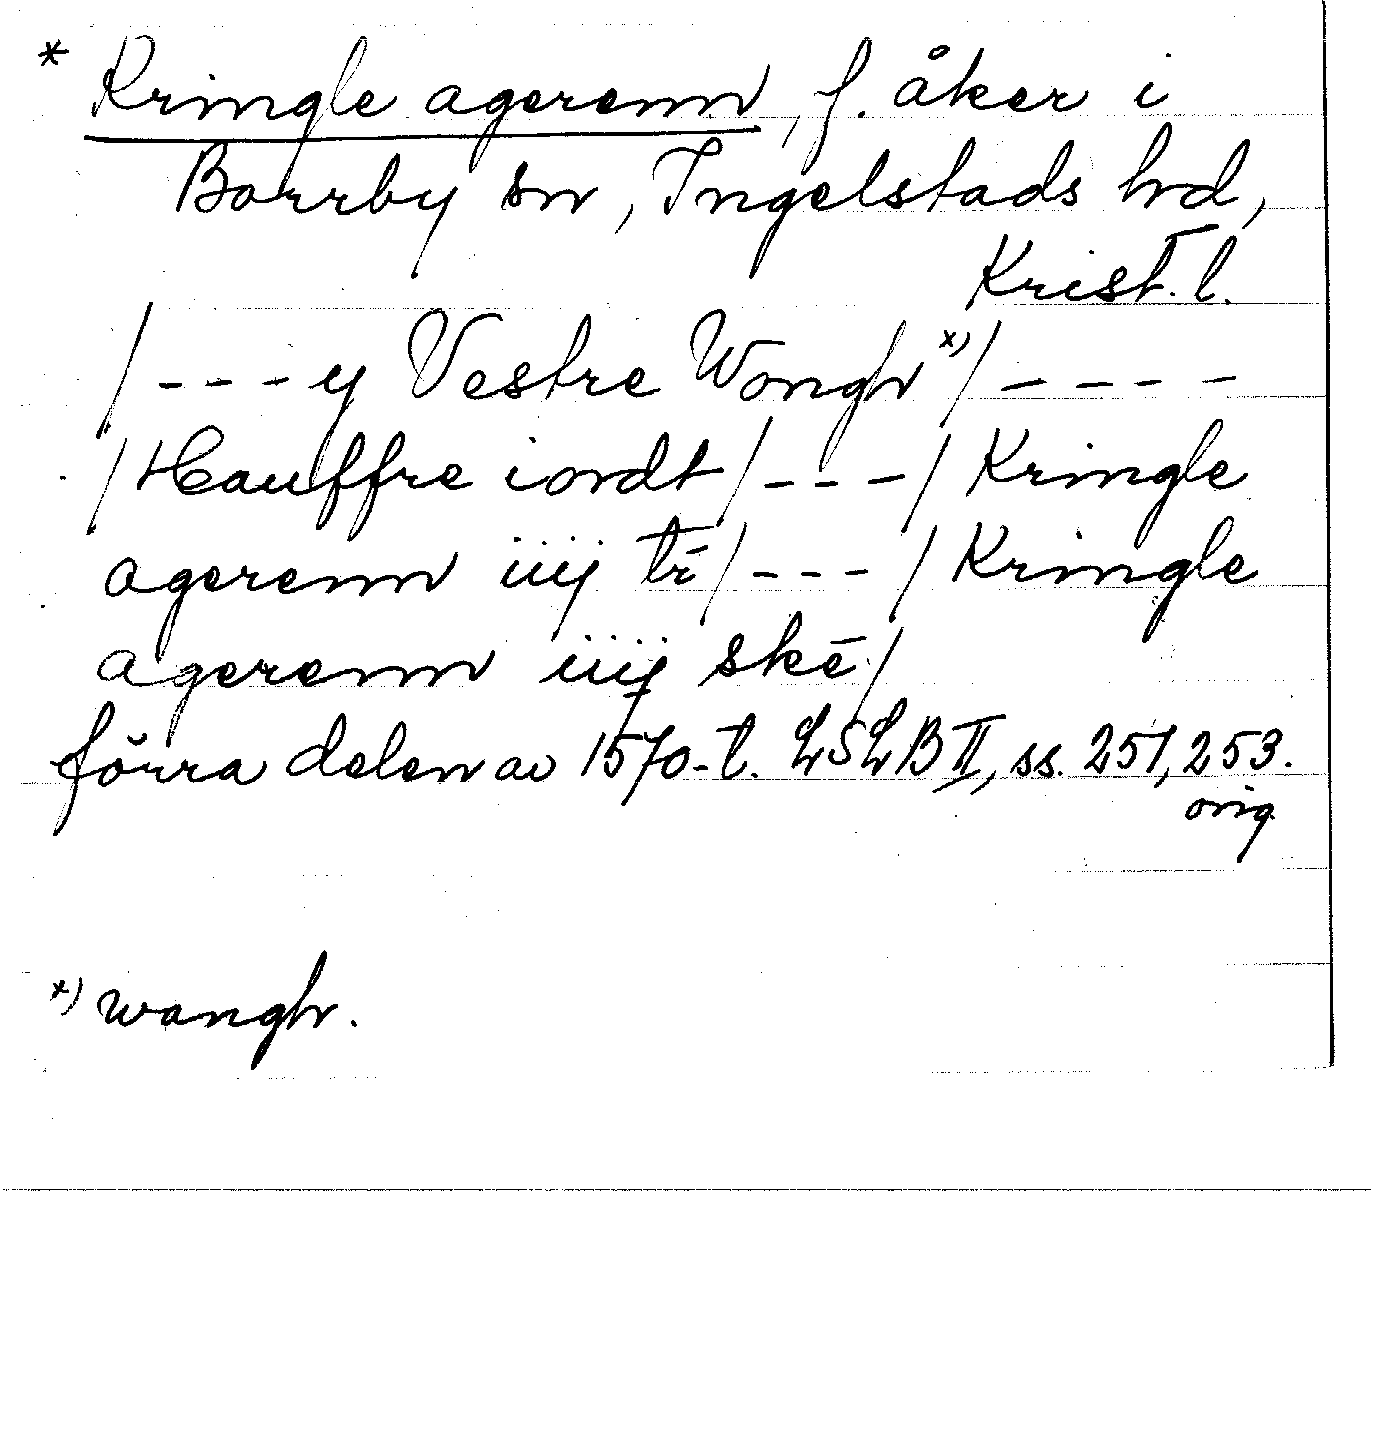 * Kringle agerenn, f. åker i
Borrby sn, Ingelstads hd,
Krist. l.
/---y Vestre Wongh x)/----
/Hauffre iordt/---/Kringle
agerenn iiij tr̄/---/Kringle
agerenn iiij skē/
förra delen av 1570-t. LSLB II, ss. 251, 253.
orig.
x) wangh.